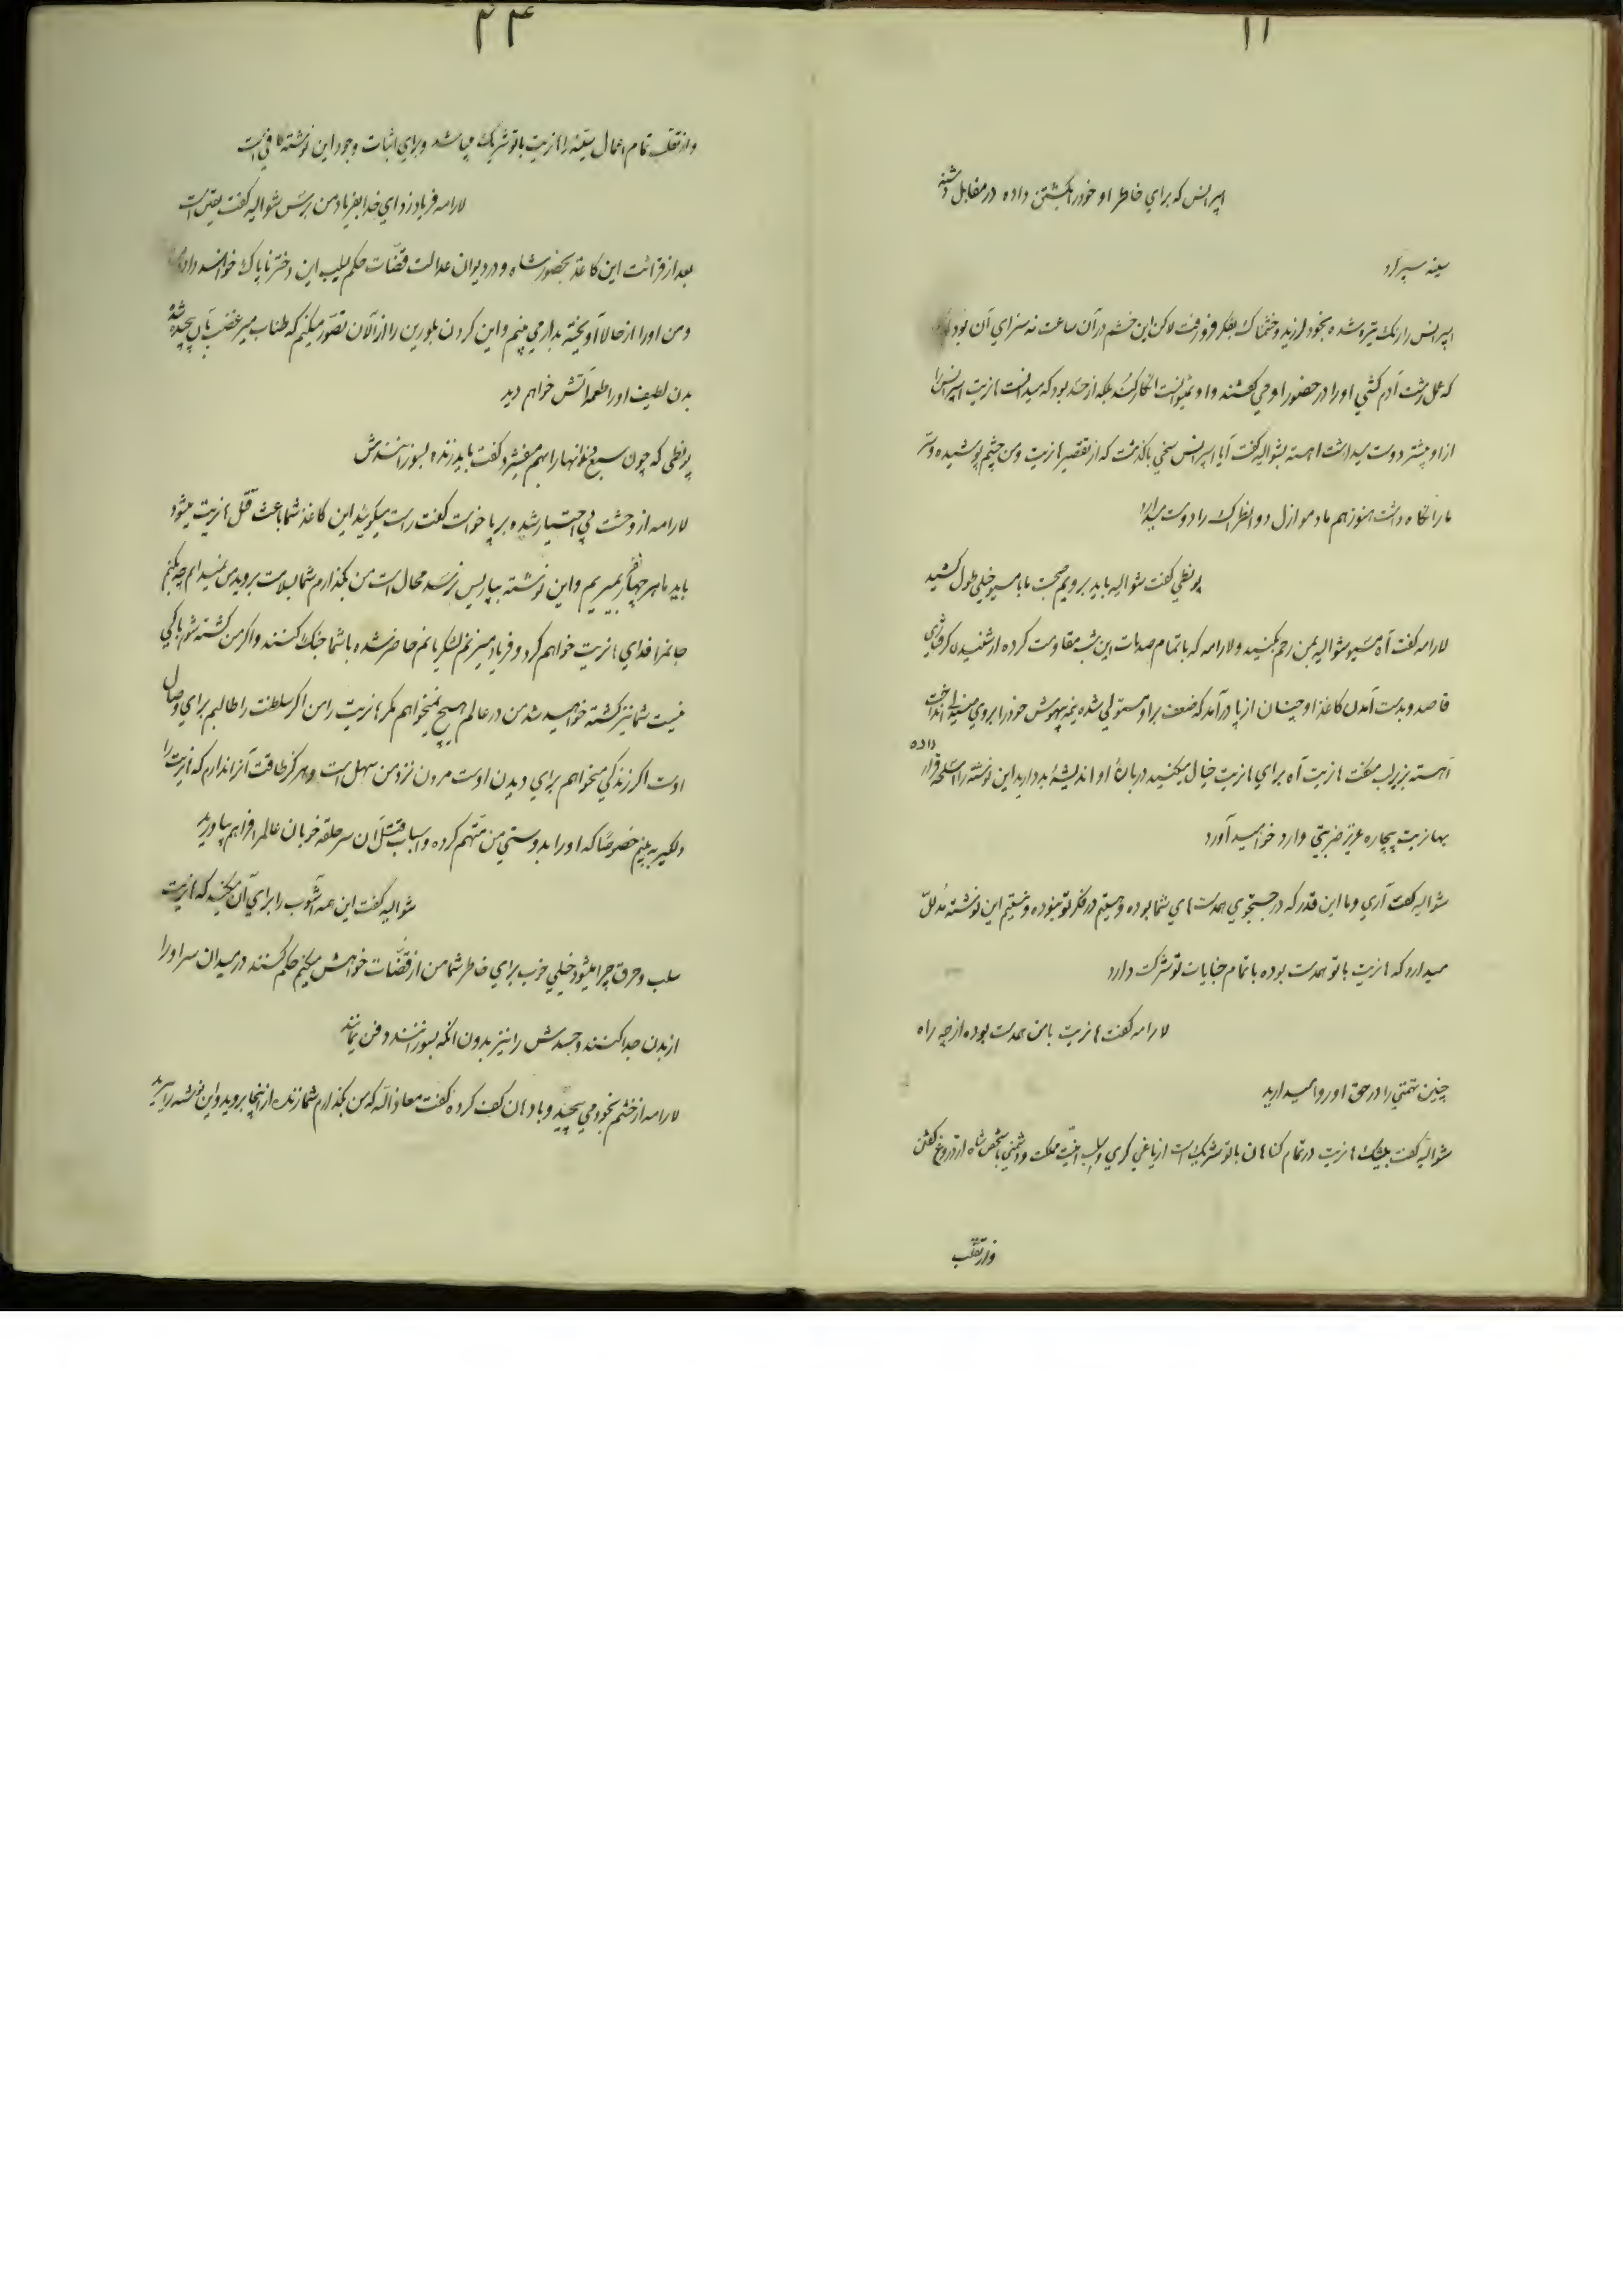 ۱۱
اسپرانس که برای خاطر او خود را بکشتن داده در مقابل دشنه
سینه سپر کرد
اسپرانس را رنک تیره شده بخود لرزید و خشمناک بفکر فرو رفت لاکن این خشم در آن ساعت نه سزای آن بود
که عمل زشت آدم کشی او را در حضور او می گفتند و او نمیتوانست انکار کند بلکه از حسد بود که میدانست هانریت اسپرانس را
از او بیشتر دوست میداشت اهسته بشوالیه گفت آیا اسپرانس سخی باک نداشت که از تقصیر هانریت و من چشم پوشیده و ستر
ما را نکاه داشت هنوز هم مادموازل دوانطراک را دوست میدارد
پونطی گفت شوالیه باید برویم صحبت ما با مسیو خیلی طول کشید
لارامه گفت آه مسیو شوالیه بمن رحم بکنید و لارامه که با تمام صدمات این شب مقاومت کرده از شنیدن
قاصد و بدست آمدن کاغذ او چنان از پا درآمد که ضعف بر او مستولی شده نیمه بیهوش خود را بروی صندلی انداخت
آهسته بزیر لب میگفت هانریت آه برای هانریت خیال میکنید درباره او اندیشه بد دارید این نوشته را اسلحه قرار داده
بهانریت بیچاره عزیز ضربتی وارد خواهید آورد
شوالیه گفت آری و ما این قدر که در جستجوی همدست های شما بوده و هستیم در فکر تو نبوده و نیستیم این نوشته مدلل
میدارد که هانریت با تو همدست بوده با تمام جنایات تو شرکت دارد
لارامه گفت هانریت با من همدست بوده از چه راه
چنین تهمتی را در حق او روا میدارید
شوالیه گفت بیشک هانریت در تمام کناهان با تو شریک است از یاغی کری و سلب امنیت مملکت و دشمنی با شخص شاه از دروغ گفتن
و از تقلب
۲۴
و از تقلب تمام اعمال سیئه را هانریت با تو شریک میباشد و برای اثبات وجود این نوشته کافی است
لارامه فریاد زد ای خدا بفریاد من برس شوالیه گفت یقین است
بعد از قرائت این کاغذ بحضور شاه و در دیوان عدالت قضات حکم بسلب این دختر ناپاک خواهند داد
و من او را از حالا آویخته بدار می بینم و این کردن بلورین را از آلان تصور میکنم که طناب میرغضب بآن پیچیده شده
بدن لطیف او را طعمه آتش خواهم دید
پونطی که چون سبع دندانها را بهم میفشرد گفت باید زنده بسوزانندش
لارامه از وحشت بی اختیار شده بر پا خواست گفت راست میکوئید این کاغذ شما باعث قتل هانریت میشود
باید ما هر چهار نفر بمیریم و این نوشته بپاریس نرسد محال است من بکذارم شما بسلامت بروید من نمیدانم چه بکنم
جانم را فدای هانریت خواهم کرد و فریاد میزنم لشکریانم حاضر شده با شما جنک کنند و اکر من کشته شوم باکی
نیست شما نیز کشته خواهید شد من در عالم هیچ نمیخواهم مکر هانریت را من اکر سلطنت را طالبم برای وصال
اوست اکر زندکی میخواهم برای دیدن اوست مردن نزد من سهل است و هرکز طاقت آنرا ندارم که هانریت را
دلکیر به بینم خصوصا که او را بدوستی من متهم کرده و اسباب قتل آن سر حلقه خوبان عالم را فراهم بیاورید
شوالیه گفت این همه آشوب را برای آن میکنید که هانریت
سلب و حرق چرا میشود خیلی خوب برای خاطر شما من از قضات خواهش میکنم حکم کنند در میدان سر او را
از بدن جدا کنند و جسدش را نیز بدون انکه بسوزانند دفن نمایند
لارامه از خشم بخود می پیچید و با دهان کف کرده گفت معاذ الله که من بکذارم شما زنده از اینجا بروید و این نوشته را ببرید